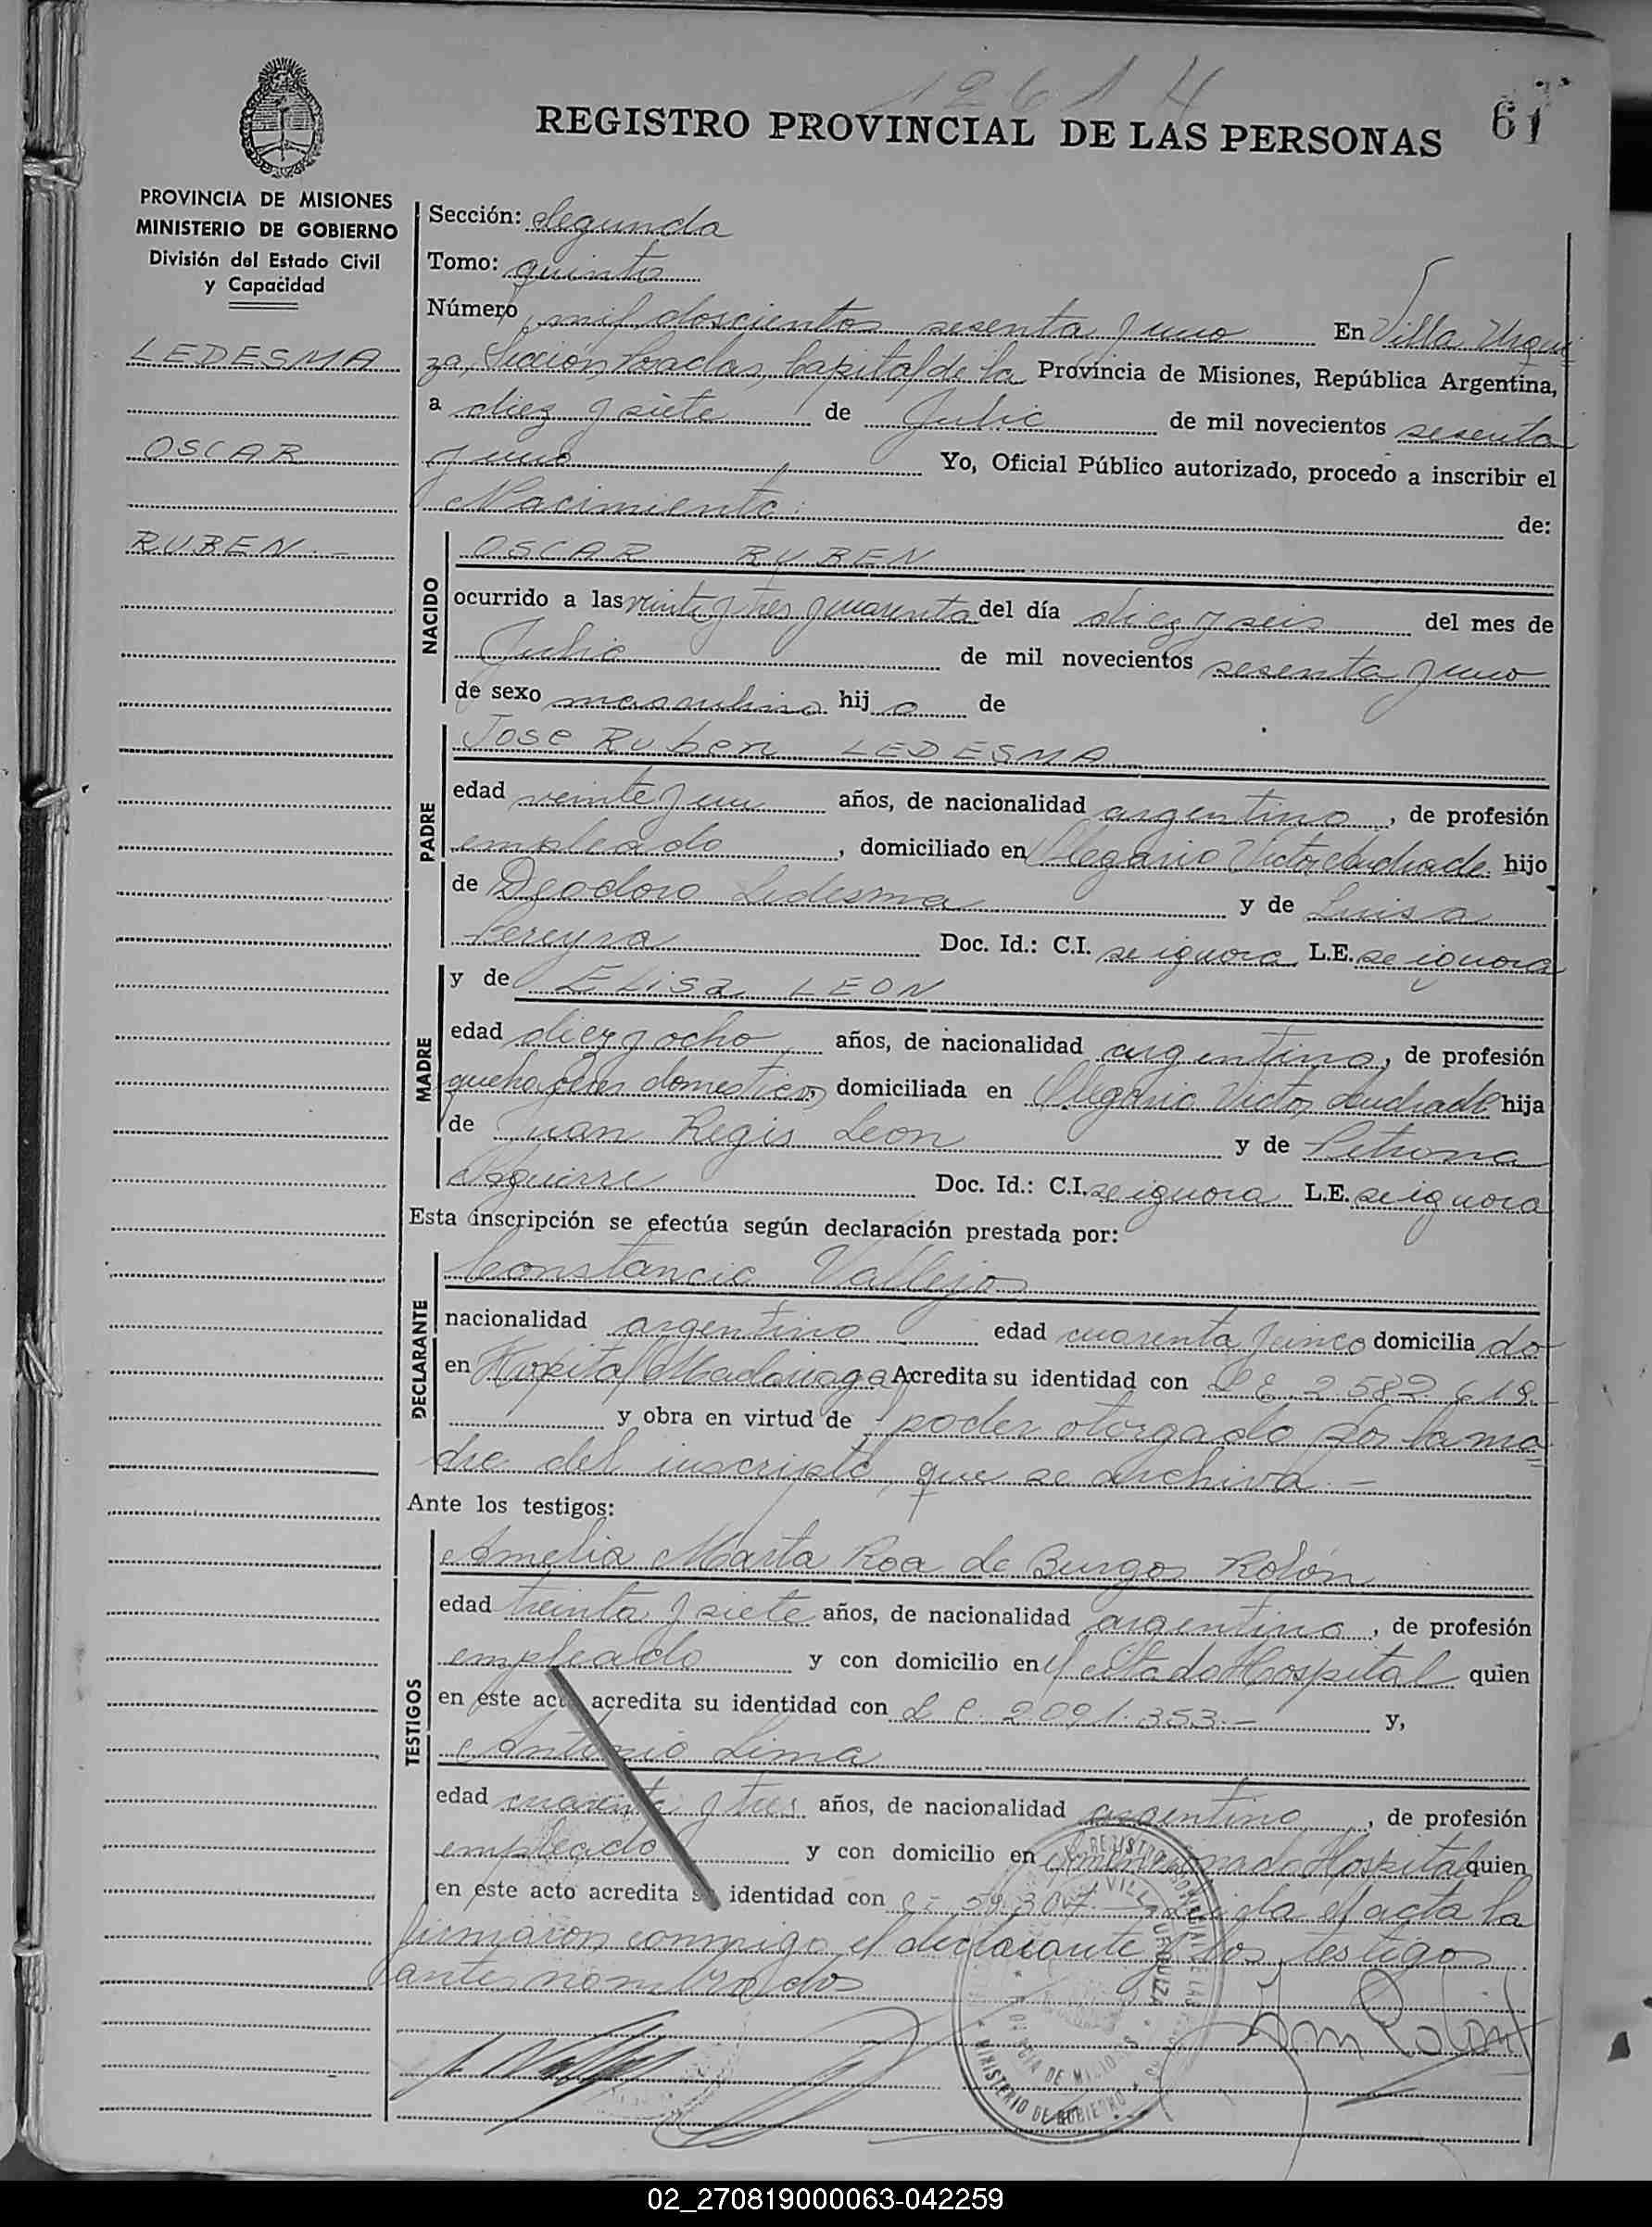 1261 4
REGISTRO PROVINCIAL DE LAS PERSONAS
61
PROVINCIA DE MISIONES
MINISTERIO DE GOBIERNO
División del Estado Civil
y Capacidad
LEDESMA
OSCAR
RUBEN.-
Sección: Segunda
Tomo: quinto
Número mil doscientos sesenta y uno En Villa Urqui
za, Sección Posadas, Capital de la Provincia de Misiones, República Argentina,
a diez y siete de Julio de mil novecientos sesenta
y uno Yo, Oficial Público autorizado, procedo a inscribir el
Nacimiento: de:
NACIDO
OSCAR RUBEN
ocurrido a las veinte y tres y cuarenta del día diez y seis del mes de
Julio de mil novecientos sesenta y uno
de sexo masculino hij o de
PADRE
Jose Ruben LEDESMA
edad veinte y un años, de nacionalidad argentino, de profesión
empleado, domiciliado en Olegario Victor Andrade hijo
de Deodoro Ledesma y de Luisa
Pereyra Doc. Id.: C.I. se ignora L.E. se ignora
MADRE
y de Elisa LEON
edad diez y ocho años, de nacionalidad argentina, de profesión
quehaceres domesticos domiciliada en Olegario Victor Andrade hija
de Juan Regis Leon y de Petrona
Aguirre Doc. Id.: C.I. se ignora L.E. se ignora
Esta inscripción se efectúa según declaración prestada por:
DECLARANTE
Constancio Vallejos
nacionalidad argentino edad cuarenta y cinco domicilia do
en Hospital Madariaga Acredita su identidad con L E 2.582.619.
y obra en virtud de poder otorgado por la ma
dre del inscripto, que se archiva.-
Ante los testigos:
TESTIGOS
Amelia Marta Roa de Burgos Rolón
edad treinta y siete años, de nacionalidad argentina, de profesión
empleado y con domicilio en el citado Hospital quien
en este acto acredita su identidad con L C. 2.091.353.- y,
Antonio Lima
edad cuarenta y tres años, de nacionalidad argentino, de profesión
empleado y con domicilio en Hospital quien
en este acto acredita identidad con el acta la
firmaron conmigo el declarante y los testigos
antes nombrados
REGISTRO PROVINCIAL DE LAS
VILLA URQUIZA
MINISTERIO DE GOBIERNO
02_270819000063-042259